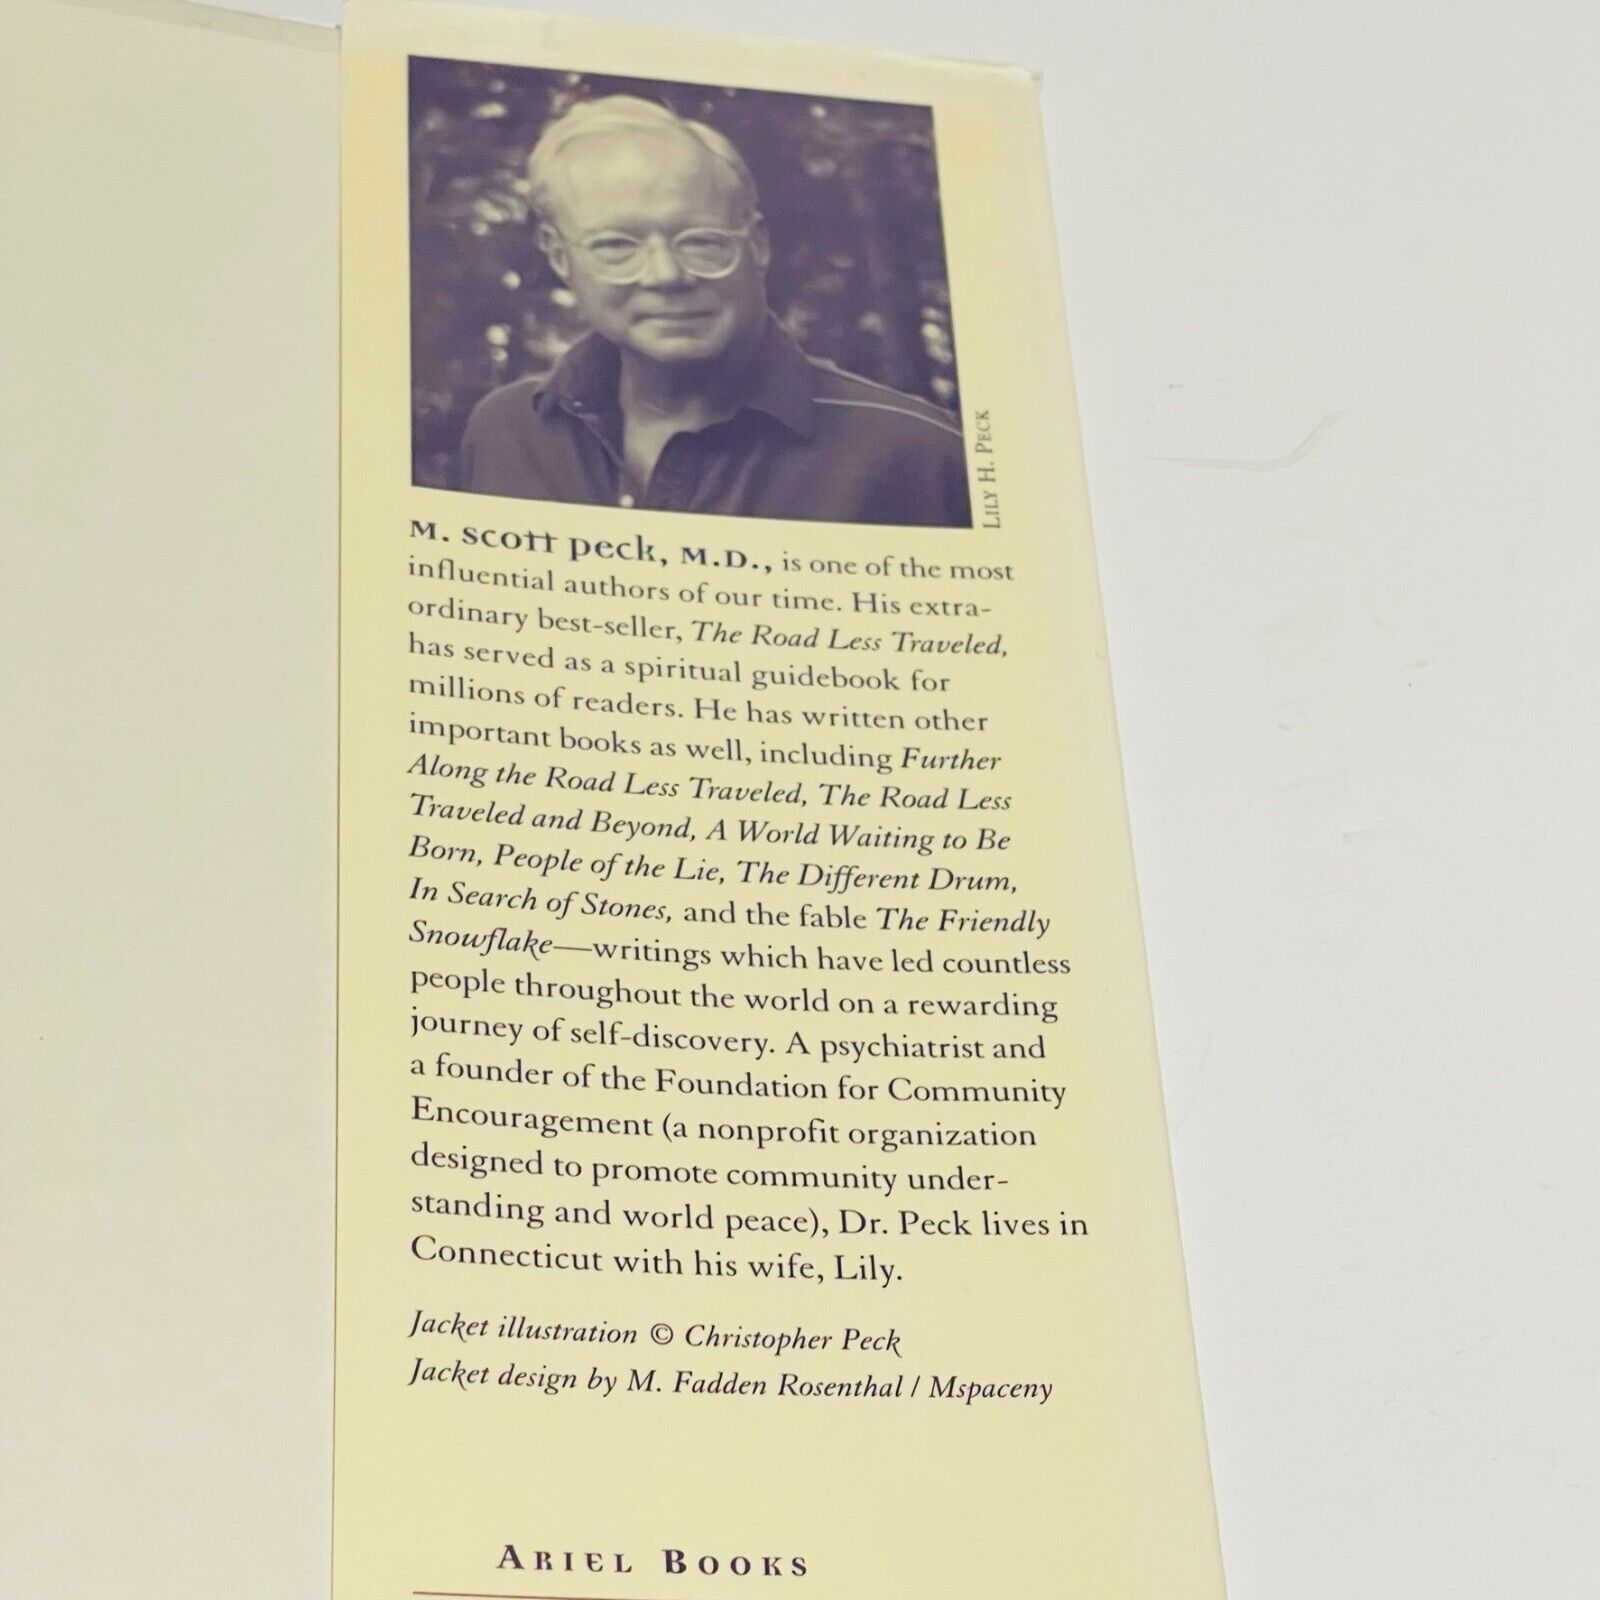 LILY H. PECK
M. scott peck, M.D., is one of the most
influential authors of our time. His extra-
ordinary best-seller, The Road Less Traveled,
has served as a spiritual guidebook for
millions of readers. He has written other
important books as well, including Further
Along the Road Less Traveled, The Road Less
Traveled and Beyond, A World Waiting to Be
Born, People of the Lie, The Different Drum,
In Search of Stones, and the fable The Friendly
Snowflake—writings which have led countless
people throughout the world on a rewarding
journey of self-discovery. A psychiatrist and
a founder of the Foundation for Community
Encouragement (a nonprofit organization
designed to promote community under-
standing and world peace), Dr. Peck lives in
Connecticut with his wife, Lily.
Jacket illustration © Christopher Peck
Jacket design by M. Fadden Rosenthal / Mspaceny
ARIEL BOOKS